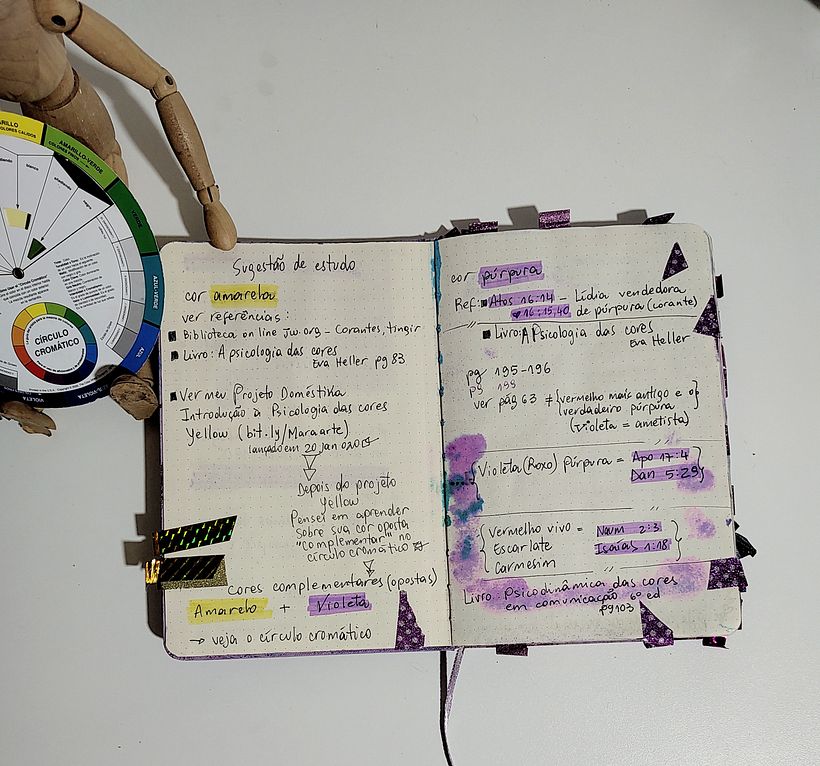 AMARILLO-VERDE
VERDE
AZUL-VERDE
AZUL
VIOLETA
CÍRCULO
CROMÁTICO
Sugestão de estudo
cor amarela
ver referências:
Biblioteca on line jw.org - Corantes, tingir
Livro: A psicologia das cores
Eva Heller pg 83
Ver meu Projeto Doméstika
Introdução à Psicologia das cores
Yellow (bit.ly/Maraarte)
lançado em 20 jan 020
Depois do projeto
Yellow
Pensei em aprender
sobre sua cor oposta
"complementar" no
círculo cromático
Cores complementares (opostas)
Amarelo + Violeta
→ veja o círculo cromático
cor púrpura
Ref: Atos 16:14 - Lídia vendedora
16:15,40 de púrpura (corante)
Livro: A Psicologia das cores
Eva Heller
pg 195-196
pg 199
ver pág 63 ≠ {vermelho mais antigo e o}
verdadeiro púrpura
(violeta = ametista)
{Violeta (Roxo) Púrpura = Apo 17:4
Dan 5:29}
{Vermelho vivo = Naum 2:3
Escarlate Isaías 1:18}
Carmesim
Livro: Psicodinâmica das cores
em comunicação 6º ed
pg 103